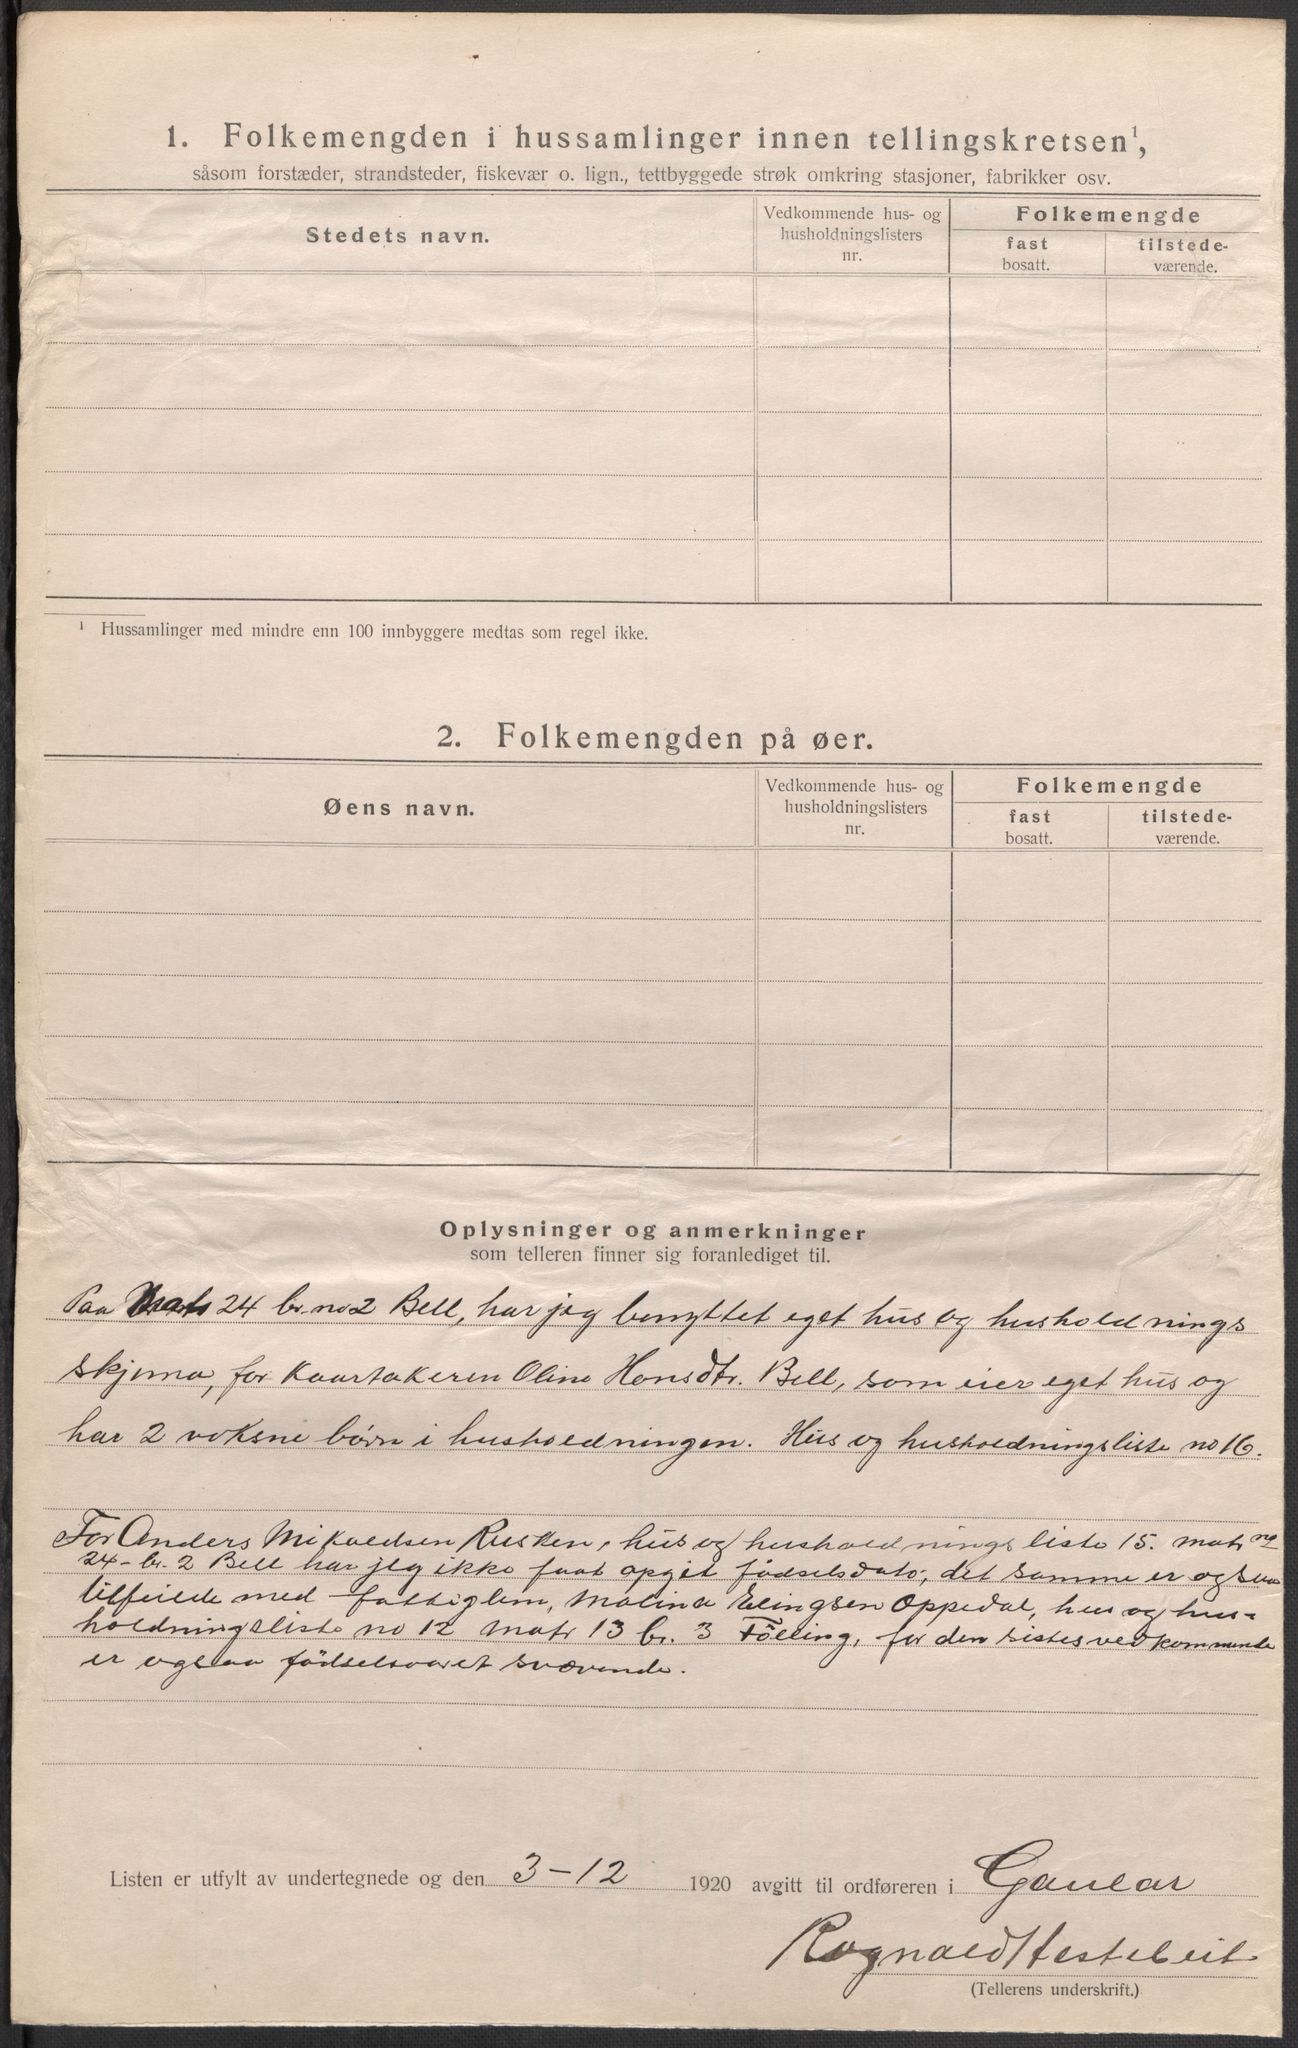 1. Folkemengden i hussamlinger innen tellingskretsen¹,
såsom forstæder, strandsteder, fiskevær o. lign., tettbyggede strøk omkring stasjoner, fabrikker osv.
Stedets navn.
Vedkommende hus- og
husholdningslisters
nr.
Folkemengde
fast
bosatt.
tilstede-
værende.
¹ Hussamlinger med mindre enn 100 innbyggere medtas som regel ikke.
2. Folkemengden på øer.
Øens navn.
Vedkommende hus- og
husholdningslisters
nr.
Folkemengde
fast
bosatt.
tilstede-
værende.
Oplysninger og anmerkninger
som telleren finner sig foranlediget til.
Paa Matr 24 br. no 2 Bell, har jeg benyttet eget hus og husholdnings
skjema, for Kaartakeren Oline Hansdtr. Bell, som eier eget hus og
har 2 voksne børn i husholdningen. Hus og husholdningsliste no 16.
For Anders Mikaelsen Rusken, hus og husholdningsliste 15. matr no
24 - br. 2 Bell har jeg ikke faat opgit fødselsdato, det samme er ogsaa
tilfeilde med fattiglem, Malina Elingsen Oppedal, hus og hus-
holdningsliste no 12 Matr 13 br. 3 Fölling, for den sistes vedkommende
er ogsaa fødselsaaret svævende.
Listen er utfylt av undertegnede og den 3-12 1920 avgitt til ordføreren i Gaular
Rognald Hestebeit
(Tellerens underskrift.)